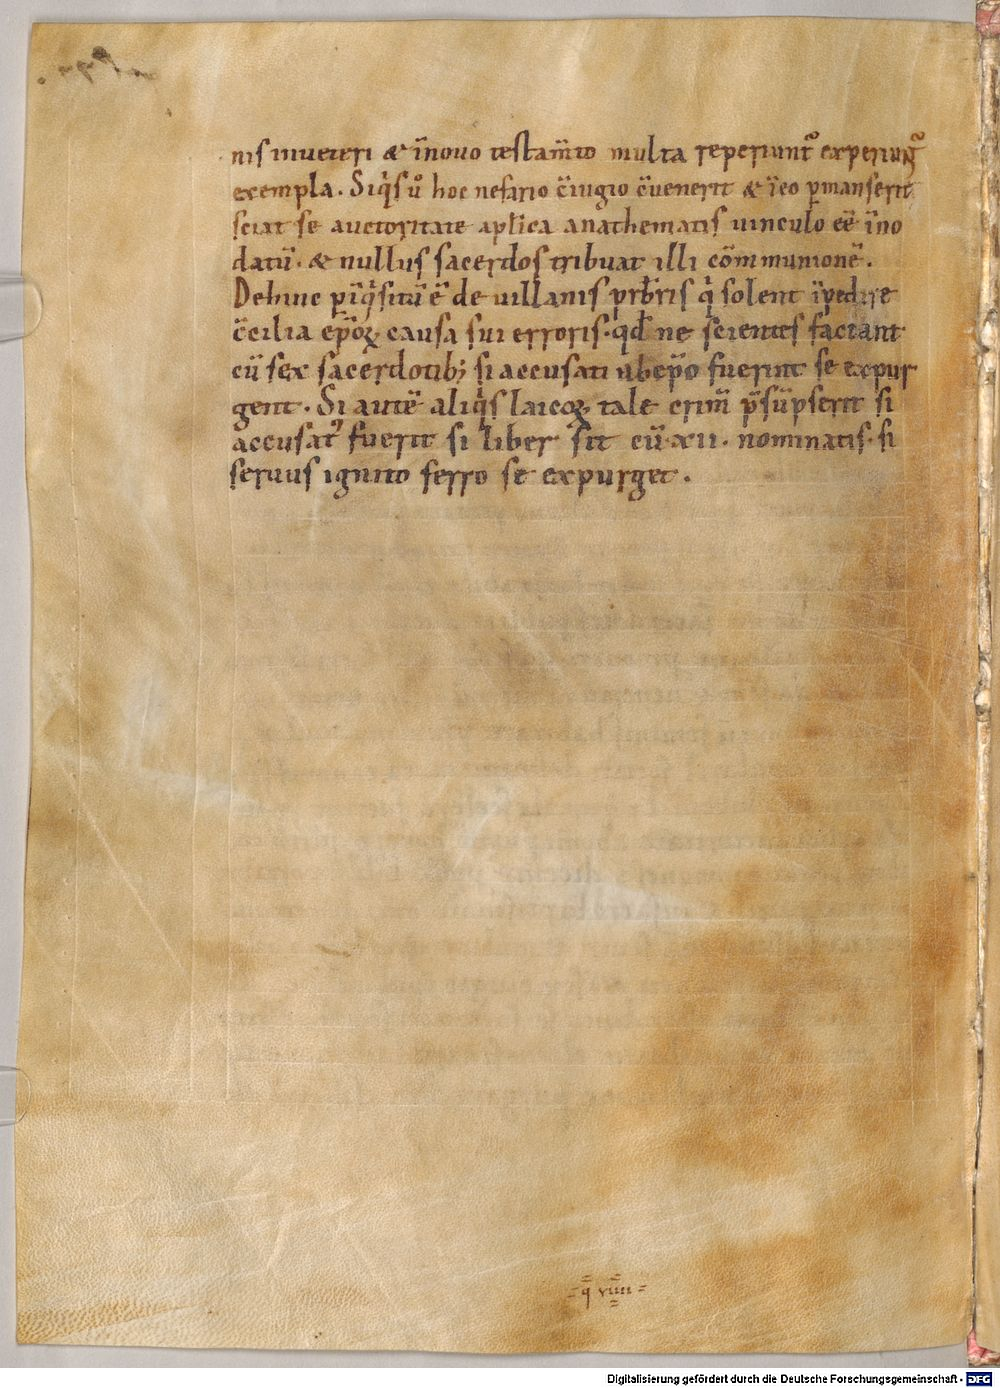 nis in ueteri & ĩnouo testam̃to multa reperiunt᷑ experiunt᷑
exempla. Siq̃s ũ hoc nefario c̃iugio c̃uenerit & ĩeo ꝑmanserit
sciat se auctoritate apl̃ica anathematis uinculo eẽ ĩno
datũ. & nullus sacerdos tribuat illi cõmmunionẽ.
Dehinc ꝑq̃sitũ ẽ de uillanis prb̃ris q̃ solent ĩpedire
c̃cilia ep̃oꝝ causa sui erroris. qđ ne scientes faciant
cũ sex sacerdotib; si accusati ub ep̃o fuerint se expur
gent. Si autẽ aliq̃s laicoꝝ tale crim̃ p̃sũpserit si
accusat᷒ fuerit si liber sit cũ xii. nominatis. si
seruus ignito ferro se expurget.
q̃ viiii
Digitalisierung gefördert durch die Deutsche Forschungsgemeinschaft - DFG